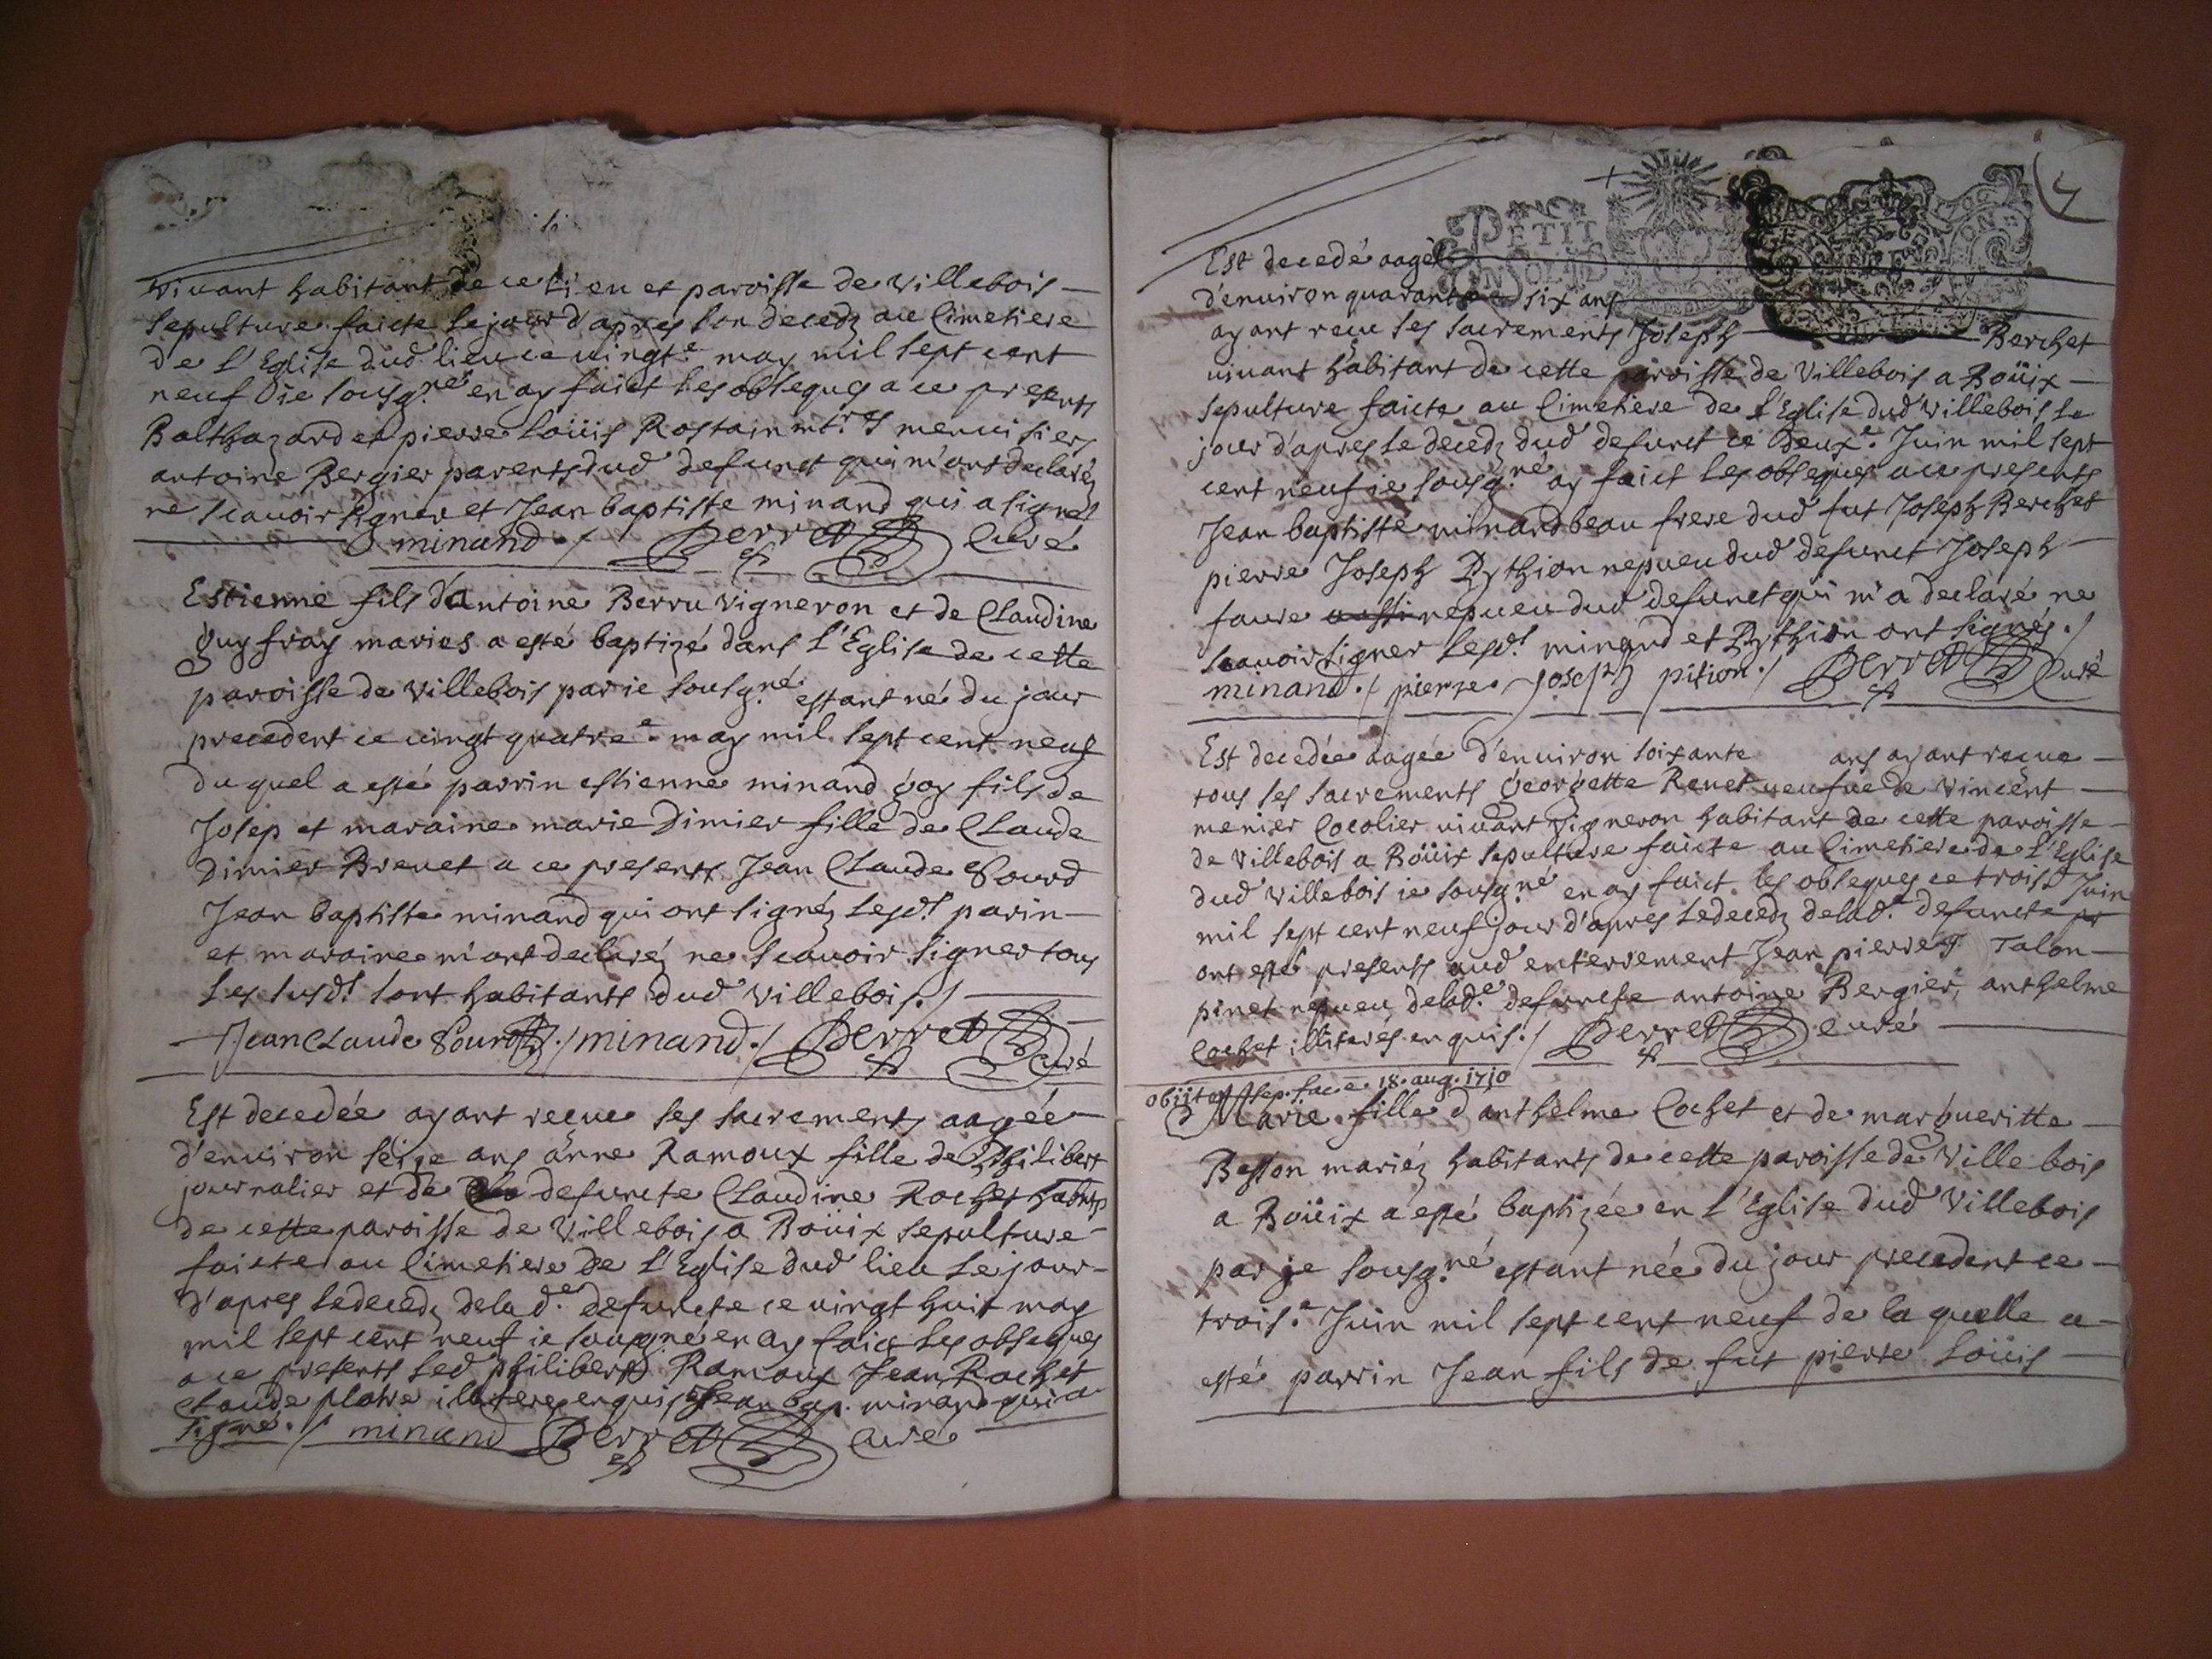 vivant habitant de ce lieu et paroisse de villebois
sepulture faicte le jour d'apres son decedz au Cimetiere
de L'Eglise dud lieu ce vingt.e may mil sept cent
neuf ie sousg.né en ay faict les obseques a ce presents
Balthazard et pierre Loüis Rostain m.res menuisiers
antoine Bergier parents dud defunct qui m'ont declaréz
ne scavoir signer et Jean baptiste minand qui a signé
minand ./ Perret Curé
Estienne fils d'antoine Berru vigneron et de Claudine
guyfray mariés a esté baptizé dans l'Eglise de cette
paroisse de villebois par ie sousg.né estant né du jour
precedent ce vingt quatre.e may mil sept cent neuf
du quel a esté parrin estienne minand goy fils de
Josep et maraine marie Dimier fille de Claude
Dimier Brenet a ce presents Jean Claude Sourd
Jean baptiste minand qui ont signéz lesd.t parin
et maraine m'ont declaréz ne scavoir signer tous
Les susd.t sont habitants dud villebois ./
Jean Claude Sourd ./ minand ./ Perret Curé
Est decedée ayant reçue ses sacrements aagée
d'environ seize ans anne Ramoux fille de Philibert
journalier et de defuncte Claudine Rochet habnts
de cette paroisse de villebois a Boüix sepulture
faicte au Cimetiere de L'Eglise dud lieu le jour
d'apres le decedz delad.e defuncte ce vingt huit may
mil sept cent neuf ie sousgné en ay faict les obseques
a ce presents led philibert Ramoux Jean Rochet
Claude platre illiteres enquis et Jean bap. minand qui a
signé ./ minand Perret Curé
PETIT
Est decedé aagé
d'environ quarante six ans
ayant recu ses sacrements Joseph Berchet
vivant habitant de cette paroisse de villebois a Boüix
sepulture faicte au Cimetiere de l'Eglise dud villebois le
jour d'apres le decedz dud defunct ce deux.e Juin mil sept
cent neuf ie sousg.né ay faict les obseques a ce presents
Jean baptiste minand beau frere dud fut Joseph Berchet
pierre Joseph Pythion nepveu dud defunct Joseph
faure aussi nepveu dud defunct qui m'a declaré ne
scavoir signer lesd.t minand et Pythion ont signés ./
minand ./ pierre joseph pition ./ Perret Curé
Est decedée aagée d'environ soixante ans ayant reçue
tous ses sacrements georgette Renet veufve de vincent
menier Cocolier vivant vigneron habitant de cette paroisse
de villebois a Boüix sepulture faicte au Cimetiere de L'Eglise
dud villebois ie sousg.né en ay faict les obseques ce trois.e Juin
mil sept cent neuf jour d'apres le decedz delad.e defuncte
ont esté presents aud enterrement Jean pierre Talon
pinet nepveu delad.e defuncte antoine Bergier, anthelme
Cochet illiteres enquis ./ Perret curé
obiit et sep. fac. e. 18. aug. 1710
Marie fille d'anthelme Cochet et de margueritte
Besson mariéz habitants de cette paroisse de ville bois
a Boüix a esté baptizée en L'Eglise dud Villebois
par je sousg.né estant née du jour precedent ce
trois.e Juin mil sept cent neuf de la quelle a
esté parrin Jean fils de fut pierre Loüis